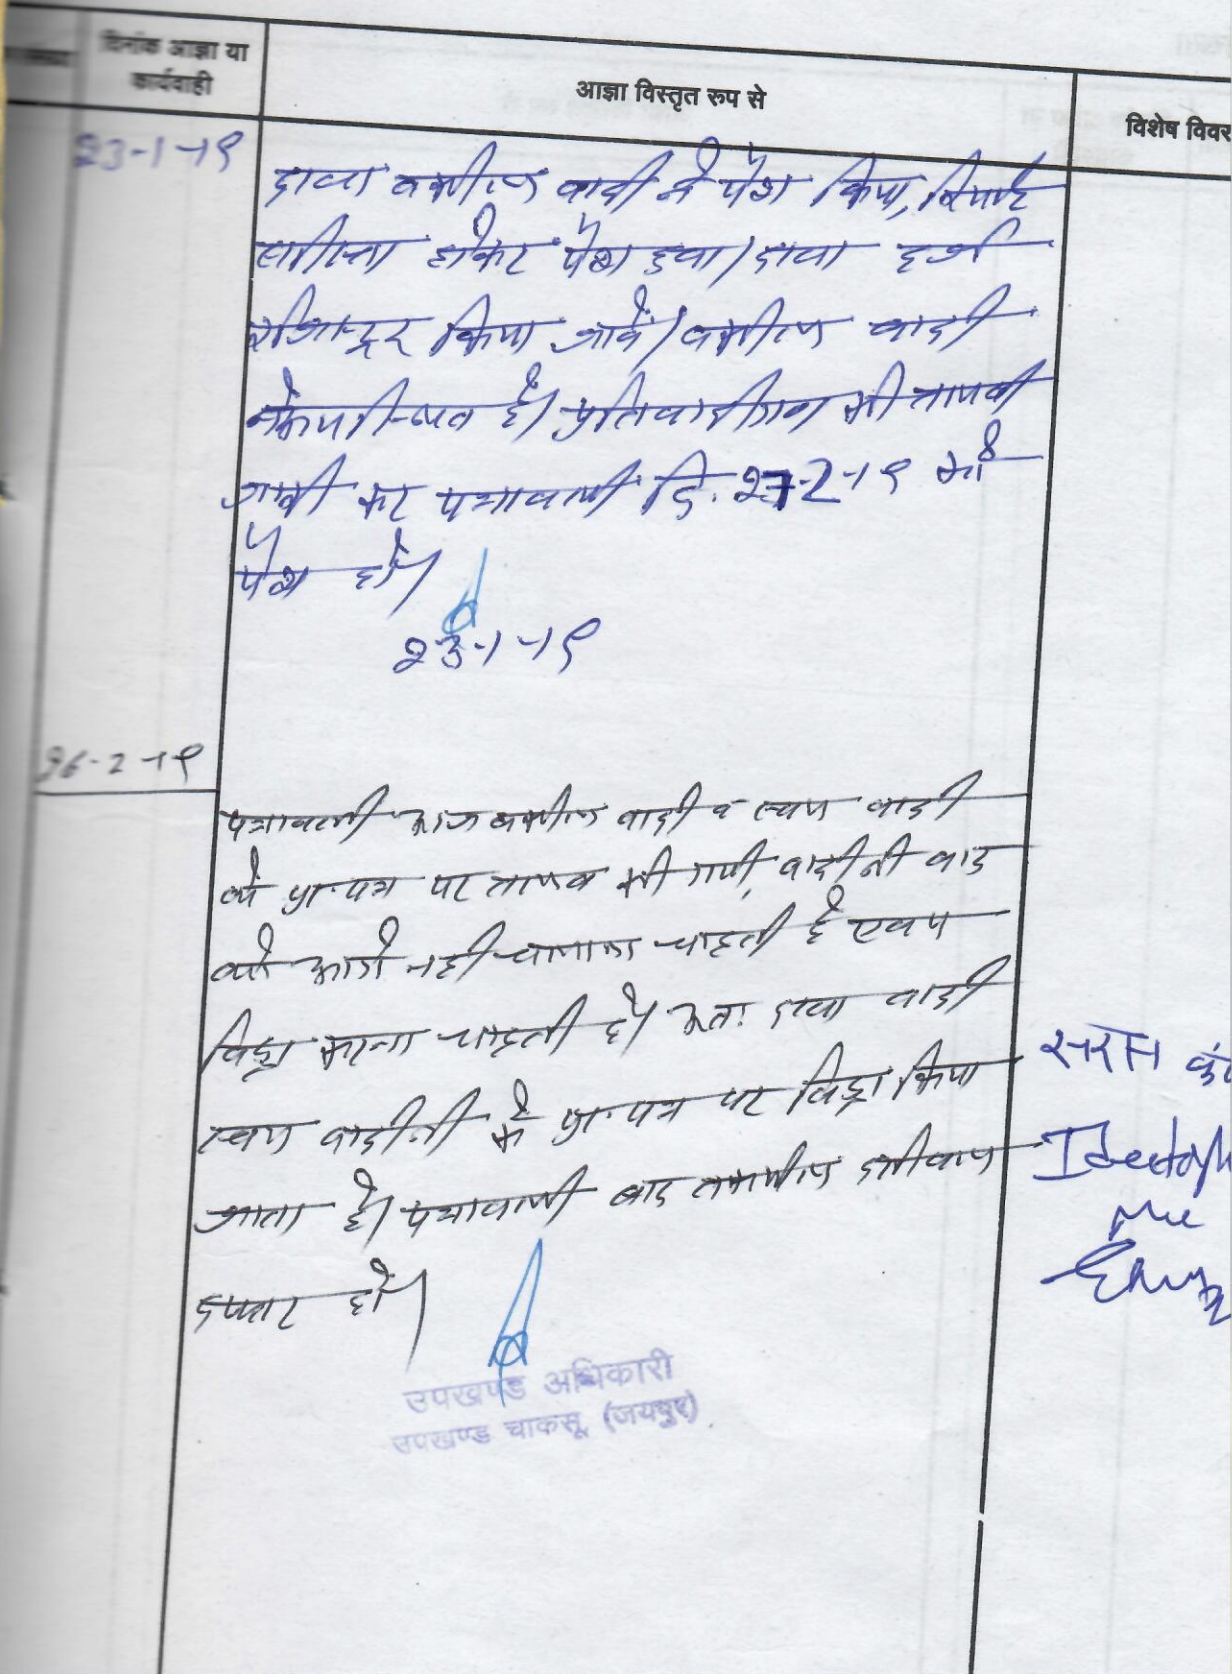 दिनांक आज्ञा या
कार्यवाही
आज्ञा विस्तृत रूप से
विशेष विवर
23-1-19
दावा वकील वादी ने पेश किया, रिपोर्ट
सरिस्ता होकर पेश हुवा। दावा दर्ज
रजिस्टर किया जावें। वकील वादी
उपस्थित है। प्रतिवादीगण की तलबी
जारी कर पत्रावली दि. 27-2-19 को
पेश हो।
23-1-19
-2-19
पत्रावली आज वकील वादी व स्वयं वादी
के प्रा.पत्र पर तलब की गयी, वादीनी वाद
को आगे नही चलाना चाहती है एवं
विड्रा करना चाहती है। अतः दावा वादी
स्वयं वादीनी के प्रा.पत्र पर विड्रा किया
जाता है। पत्रावली बाद तकमील दाखिल
दफ्तर हो।
me
उपखण्ड अधिकारी
उपखण्ड चाकसू (जयपुर)